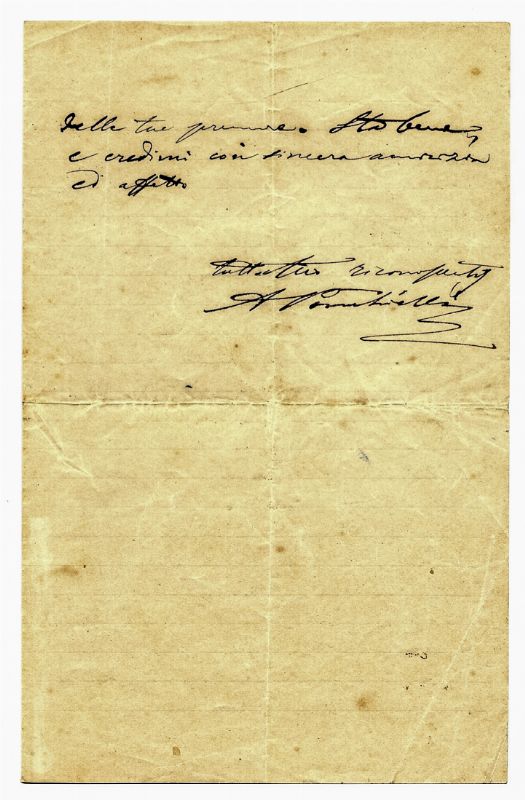 delle tue premure. Sta bene,
e credimi con sincera amicizia
ed affetto
tutto tuo
A Ponchielli